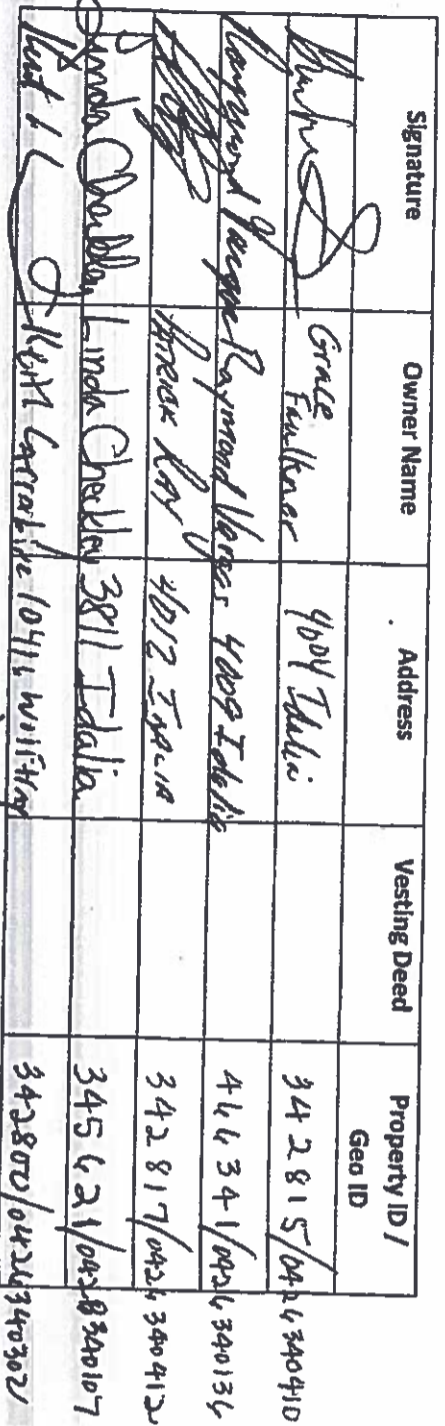 Signature Owner Name Address Vesting Deed Property ID / Geo ID
Grace Faulkner 4604 Idalia 342815/0424340410
Raymond Vargas Raymond Vargas 4009 Idalia 444341/0424340134
Patrick Ray 4012 Idalia 342817/0424340412
Linda Checkley Linda Checkley 3811 Idalia 345421/0428340107
342800/0424340302